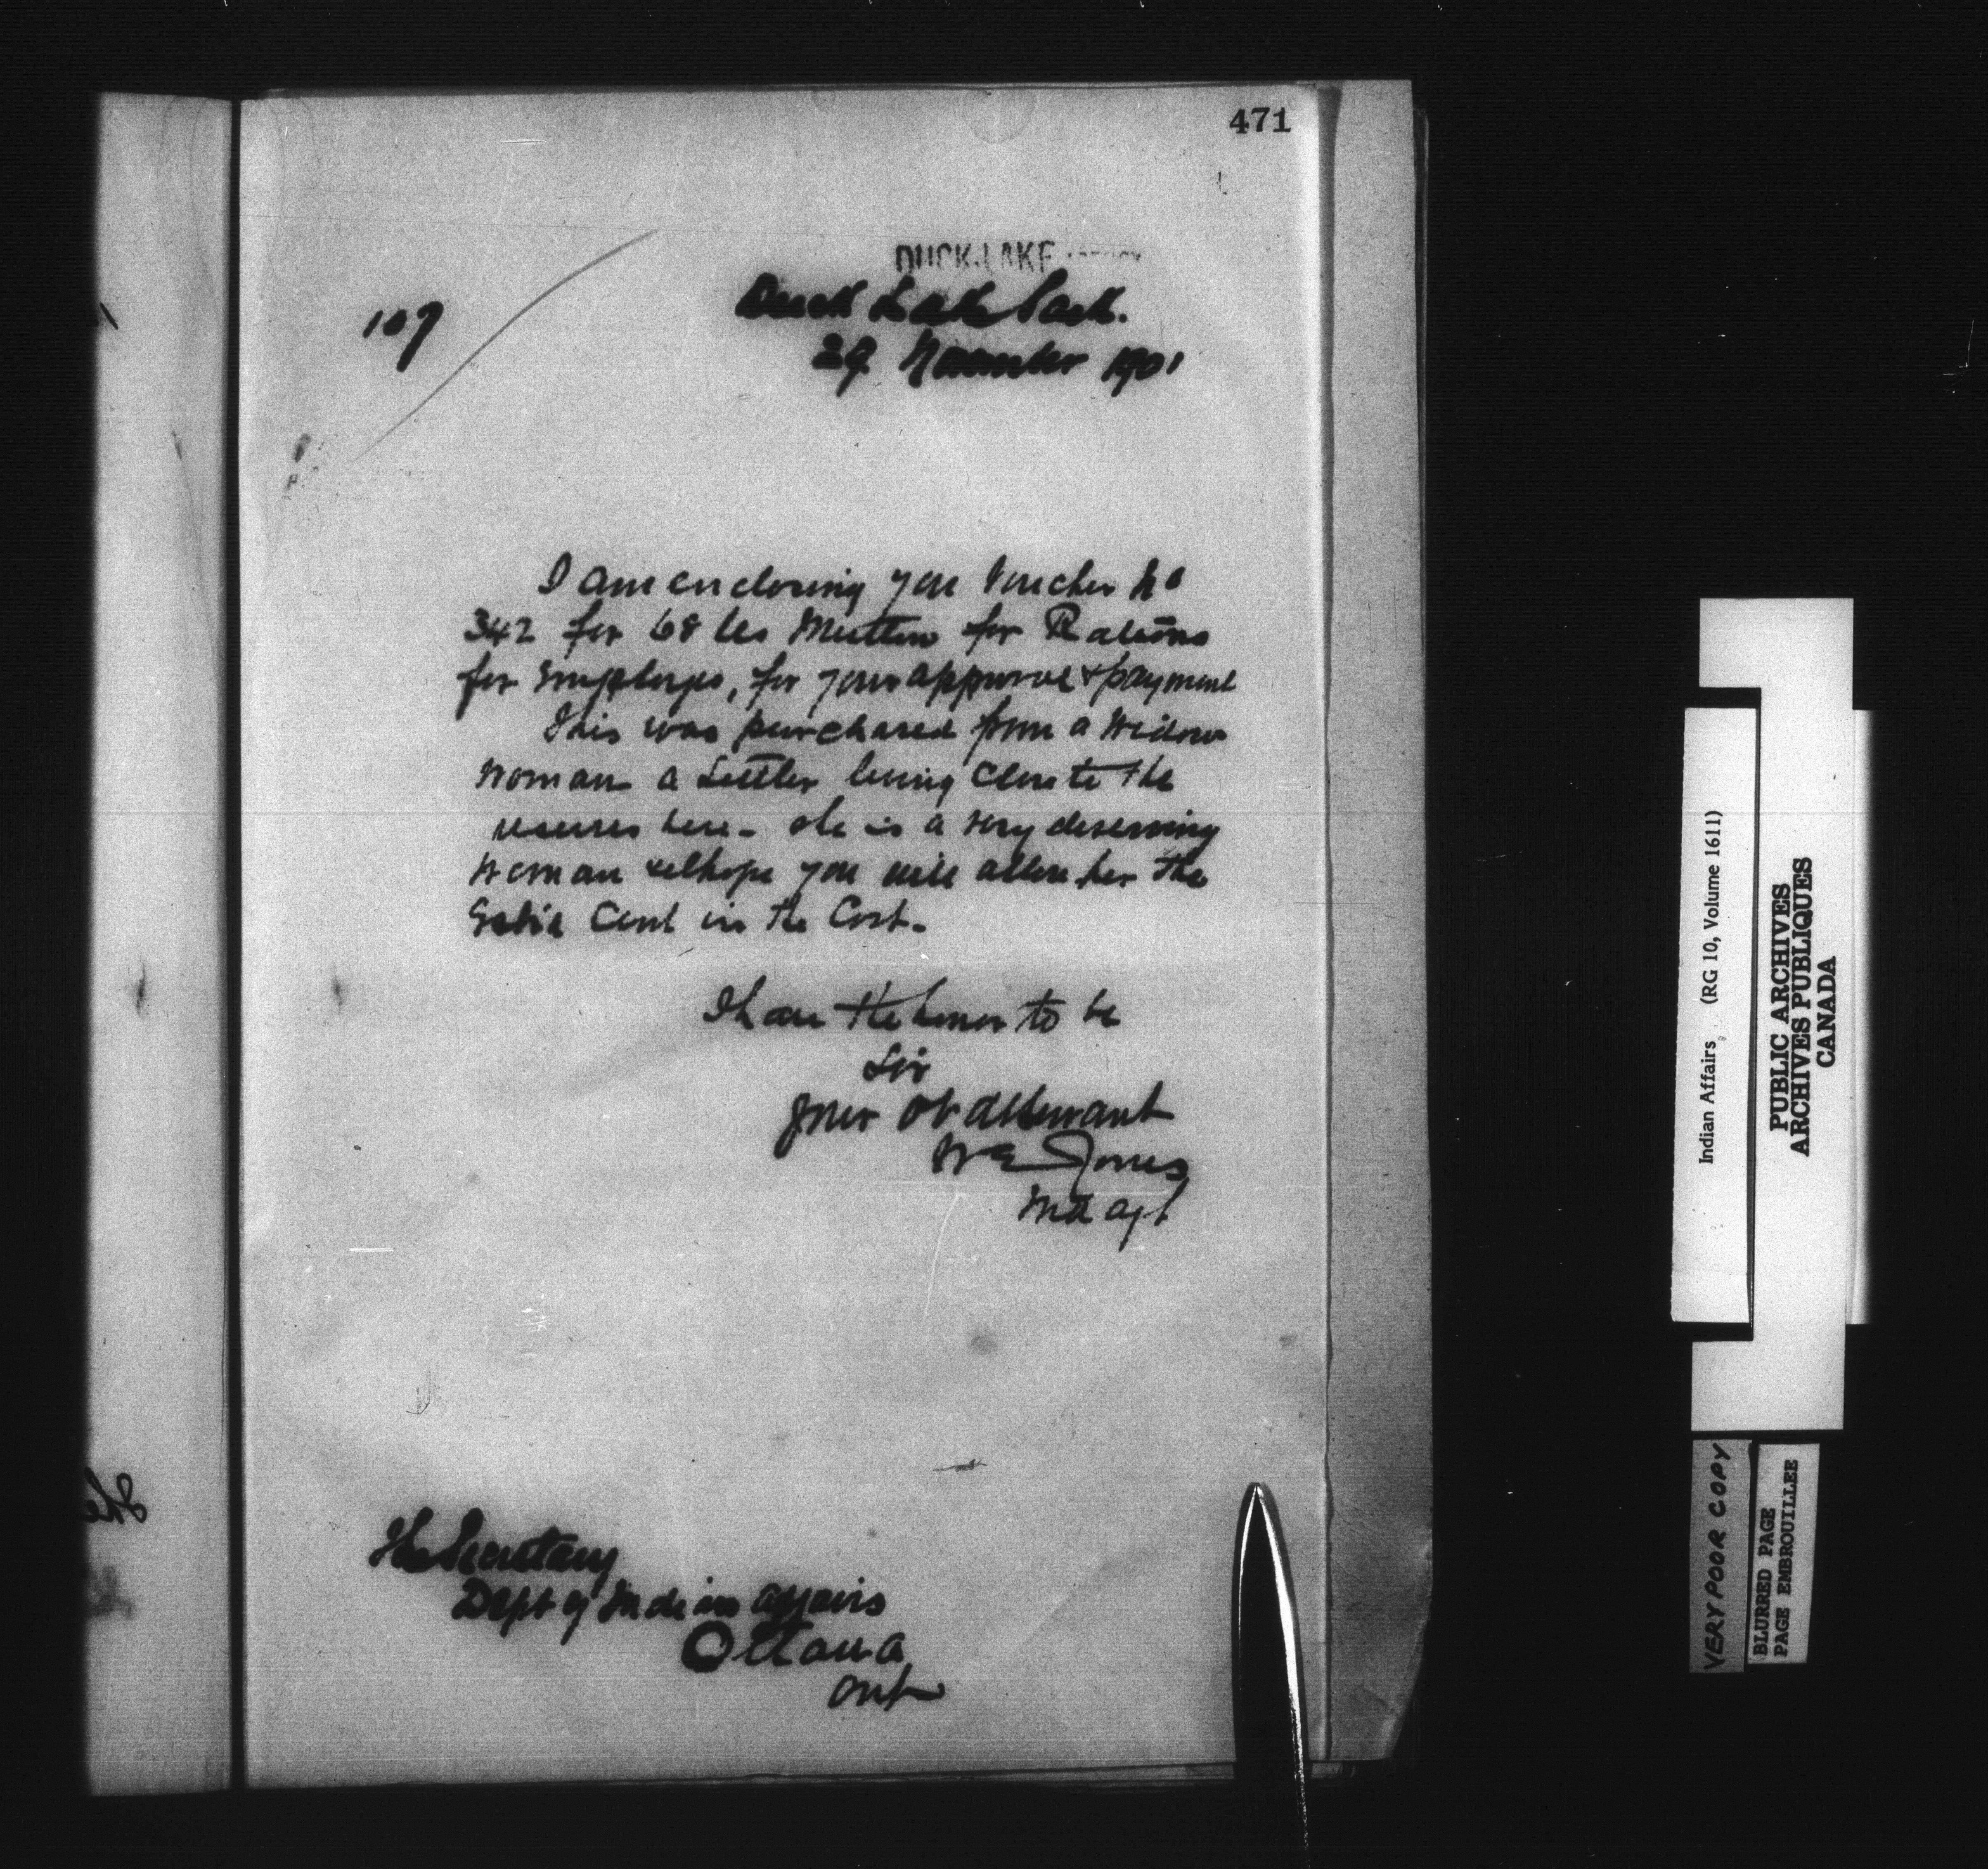 471
DUCK LAKE AGENCY
Duck Lake Sask.
109
29 November 1901
I am enclosing you Voucher No
342 for 68 lbs Mutton for Rations
for Employes, for your approval & payment
This was purchased from a Widow
Woman a Settler living Close to the
reserves here - she is a very deserving
Woman & I hope you will allow her the
Extra Cent in the Cost.
I have the honor to be
Sir
Your Obdt Servant
W E Jones
Ind Agt
The Secretary
Dept of Indian Affairs
Ottawa
Ont
The
Indian Affairs (RG 10, Volume 1611)
PUBLIC ARCHIVES
ARCHIVES PUBLIQUES
CANADA
VERY POOR COPY
BLURRED PAGE
PAGE EMBROUILLEE